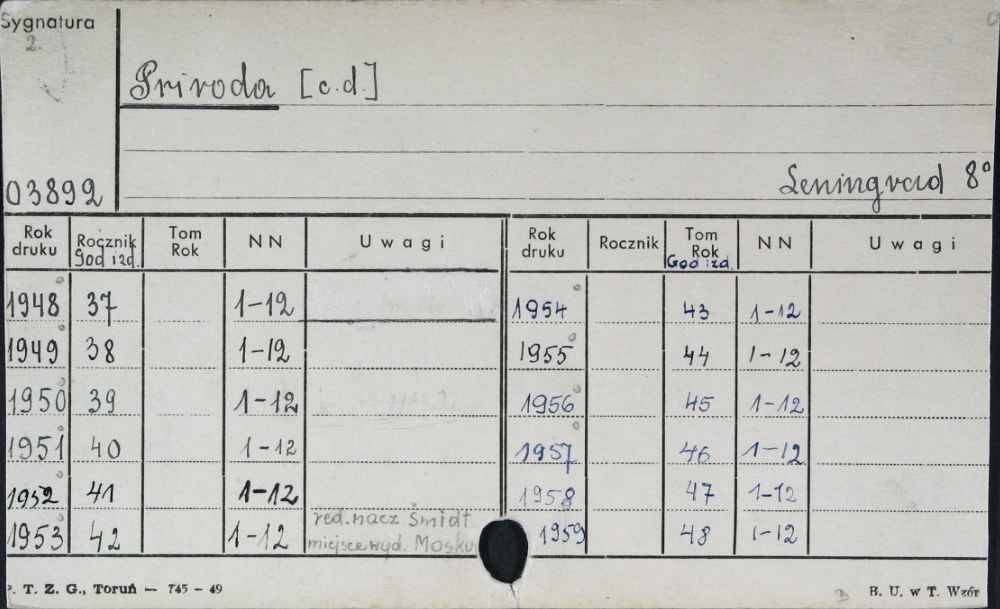 Sygnatura
2.
Priroda [c.d.]
03892
Leningrad 8°
Rok druku Rocznik God izd. Tom Rok NN Uwagi Rok druku Rocznik Tom Rok God izd. NN Uwagi
1948 37 1-12 1954 43 1-12
1949 38 1-12 1955 44 1-12
1950 39 1-12 1956 45 1-12
1951 40 1-12 1957 46 1-12
1952 41 1-12 1958 47 1-12
1953 42 1-12 red. nacz Šmidt 1959 48 1-12
miejsce wyd.
P. T. Z. G., Toruń — 745 - 49 B. U. w T. Wzór